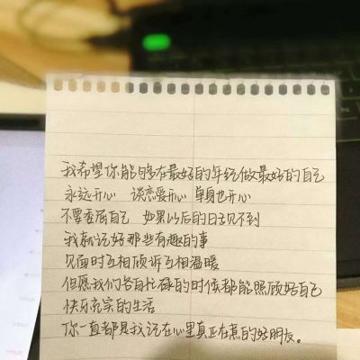 我希望你能够在最好的年纪做最好的自己
永远开心 谈恋爱开心 单身也开心
不要委屈自己 如果以后的日子见不到
我就记好那些有趣的事
见面时互相倾诉互相温暖
但愿我们各自忙碌的时候都能照顾好自己
快乐充实的生活
你一直都是我放在心里真正在意的好朋友。